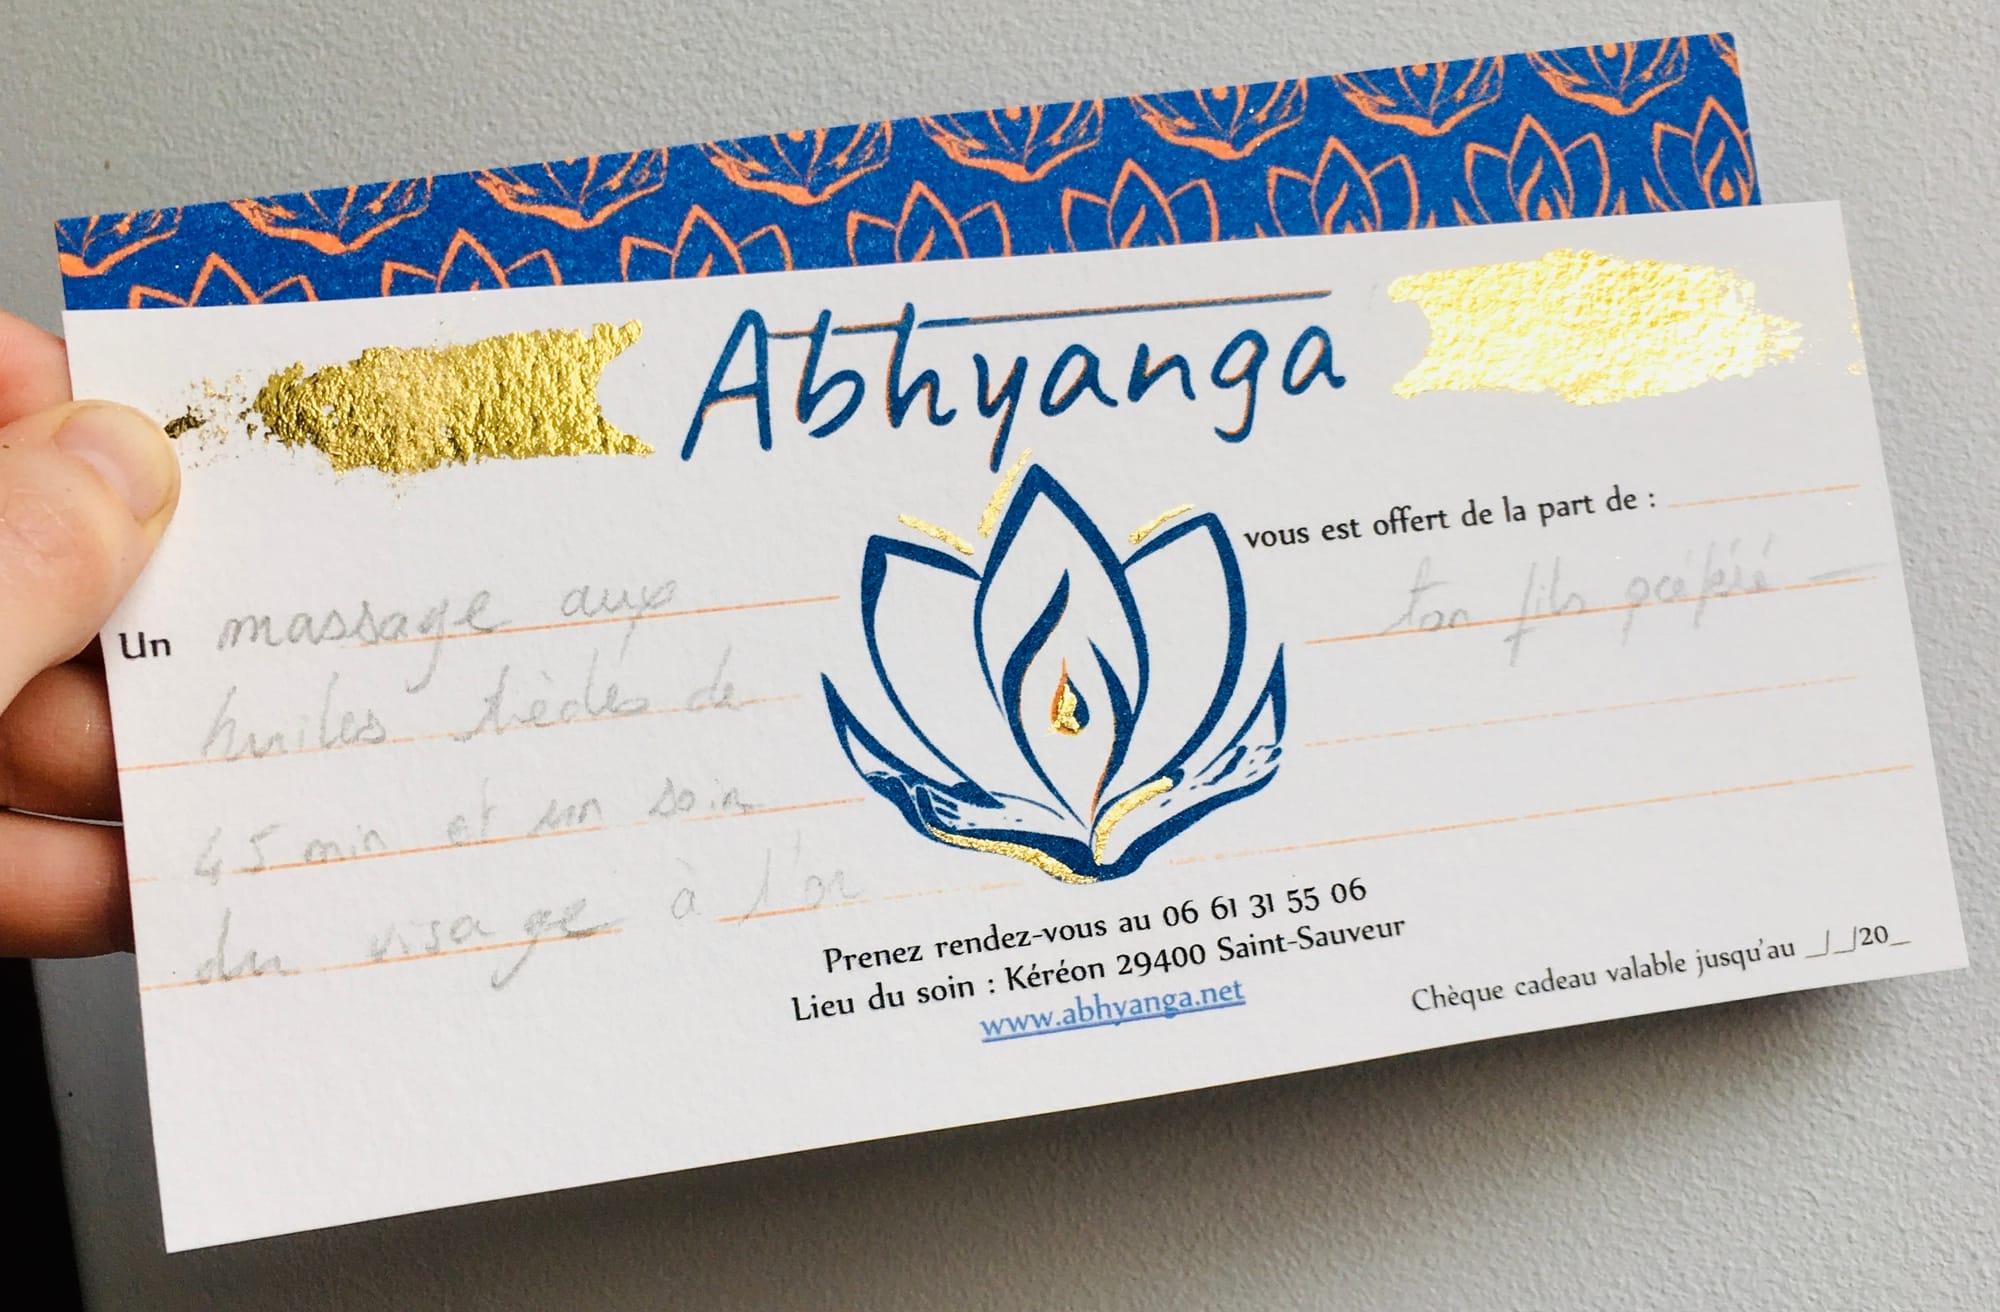 Abhyanga
Un massage aux
huiles tièdes de
45 min et un soin
du visage à l'or
vous est offert de la part de :
ton fils préféré
Prenez rendez-vous au 06 61 31 55 06
Lieu du soin : Kéréon 29400 Saint-Sauveur
www.abhyanga.net
Chèque cadeau valable jusqu'au _/_/20_